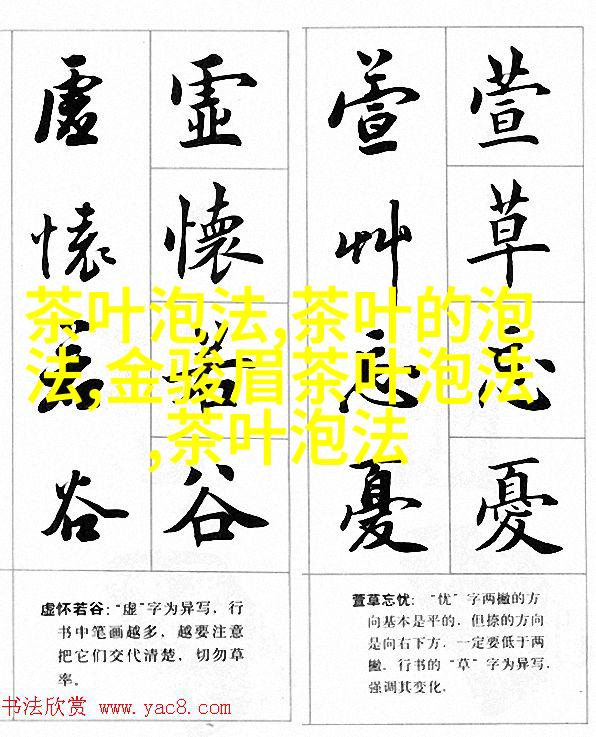 虚 虚 萱 萱
懐 懷 艸 草
茶叶泡法,茶叶的泡
法,金骏眉茶叶泡法
,茶叶泡法
若 若 忘 忘
谷 谷 憂 憂
虚怀若谷:“虚”字为异写,行
书中笔画越多,越要注意
把它们交代清楚,切勿草
率。
萱草忘忧:“忧”字两撇的方
向基本是平的,但捺的方向
是向右下方,一定要低于两
撇。行书的“草”字为异写,
强调其变化。
书法欣赏 www.yac8.com